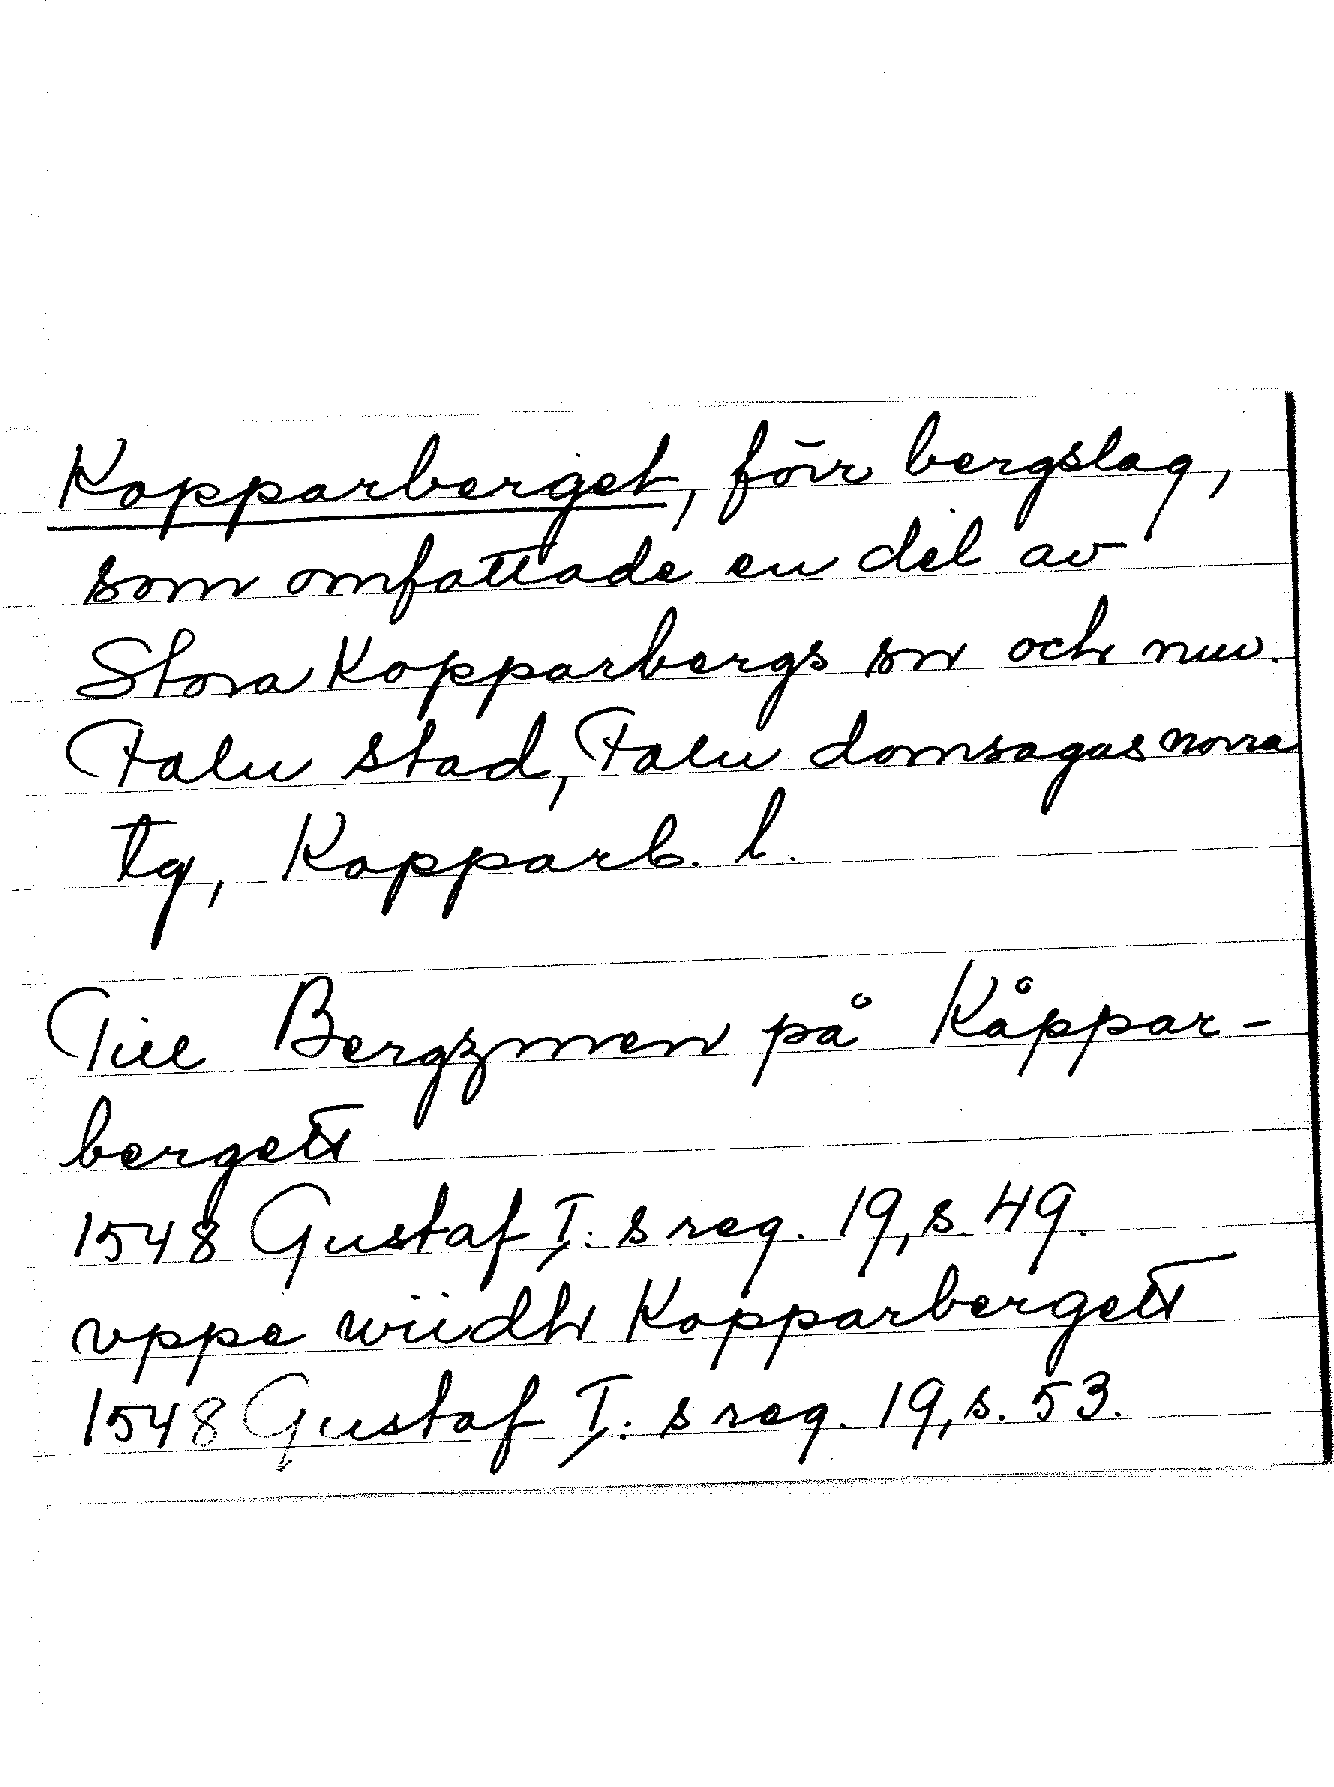 Kopparberget, förr bergslag,
som omfattade en del av
Stora Kopparbergs sn och nuv.
Falu stad, Falu domsagas norra
tg, Kopparb. l.
Till Bergzmen på Kåppar-
bergett
1548 Gustaf I:s reg. 19, s. 49.
vppe wiidh Kopparbergett
1548 Gustaf I:s reg. 19, s. 53.